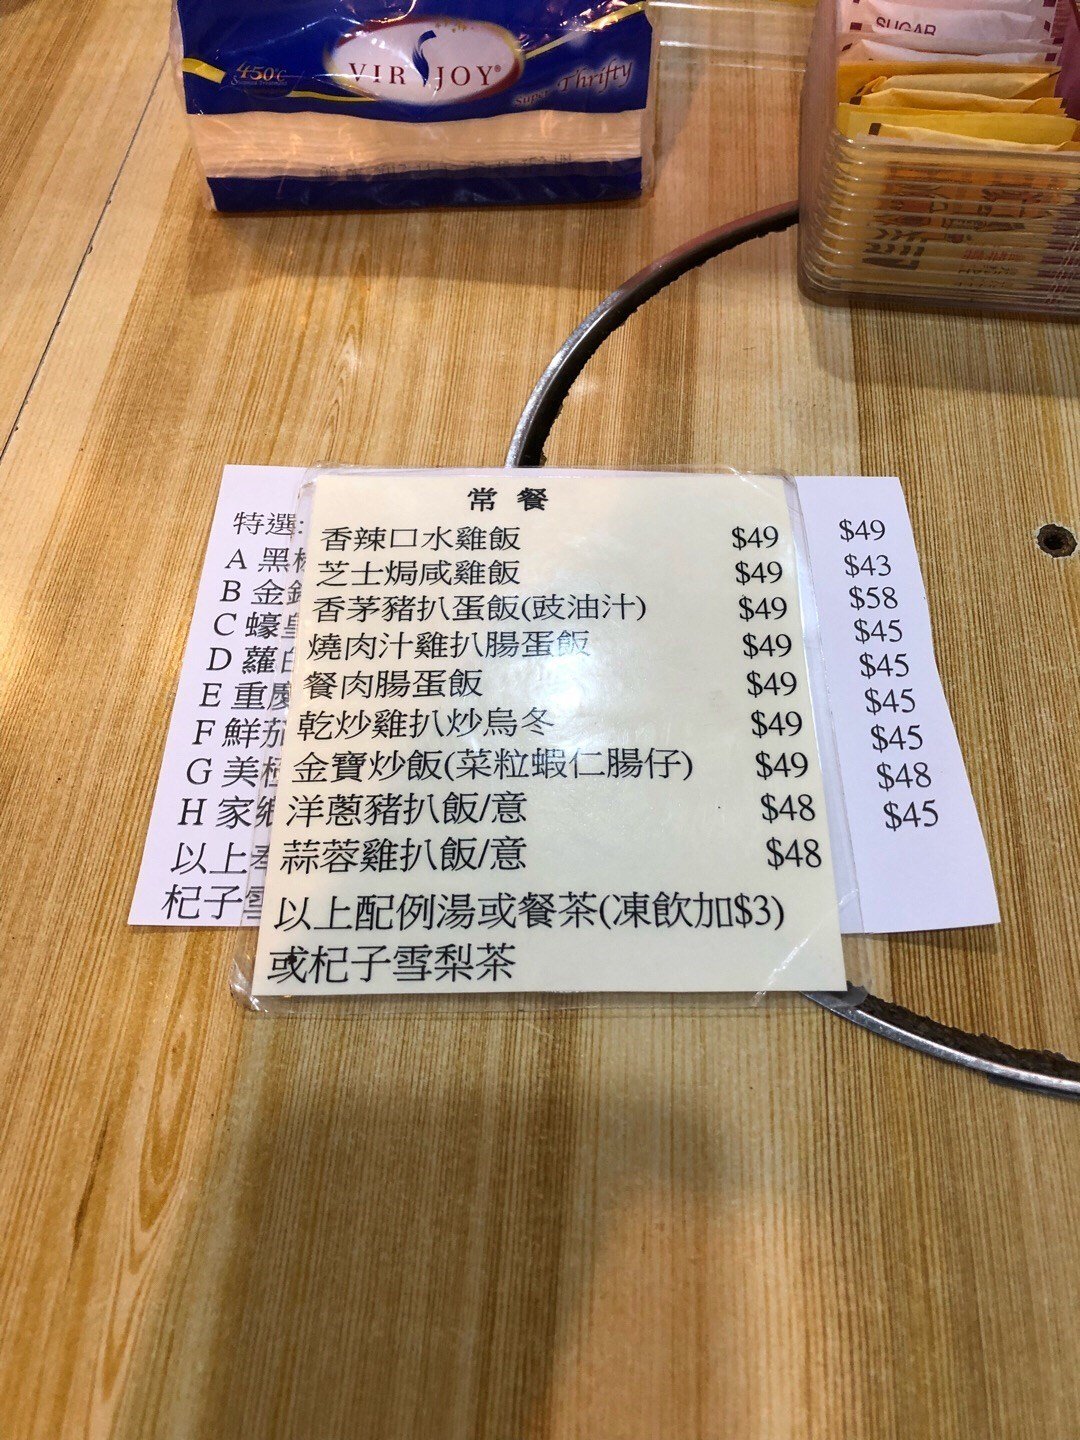 VIRJOY
450°C
Super Thrifty
SUGAR
常餐
香辣口水雞飯 $49
芝士焗咸雞飯 $49
香茅豬扒蛋飯(豉油汁) $49
燒肉汁雞扒腸蛋飯 $49
餐肉腸蛋飯 $49
乾炒雞扒炒烏冬 $49
金寶炒飯(菜粒蝦仁腸仔) $49
洋蔥豬扒飯/意 $48
蒜蓉雞扒飯/意 $48
以上配例湯或餐茶(凍飲加$3)
或杞子雪梨茶
特選: $49
A 黑 $43
B 金 $58
C 蠔 $45
D 蘿 $45
E 重 $45
F 鮮茄 $45
G 美 $48
H 家 $45
以上
杞子